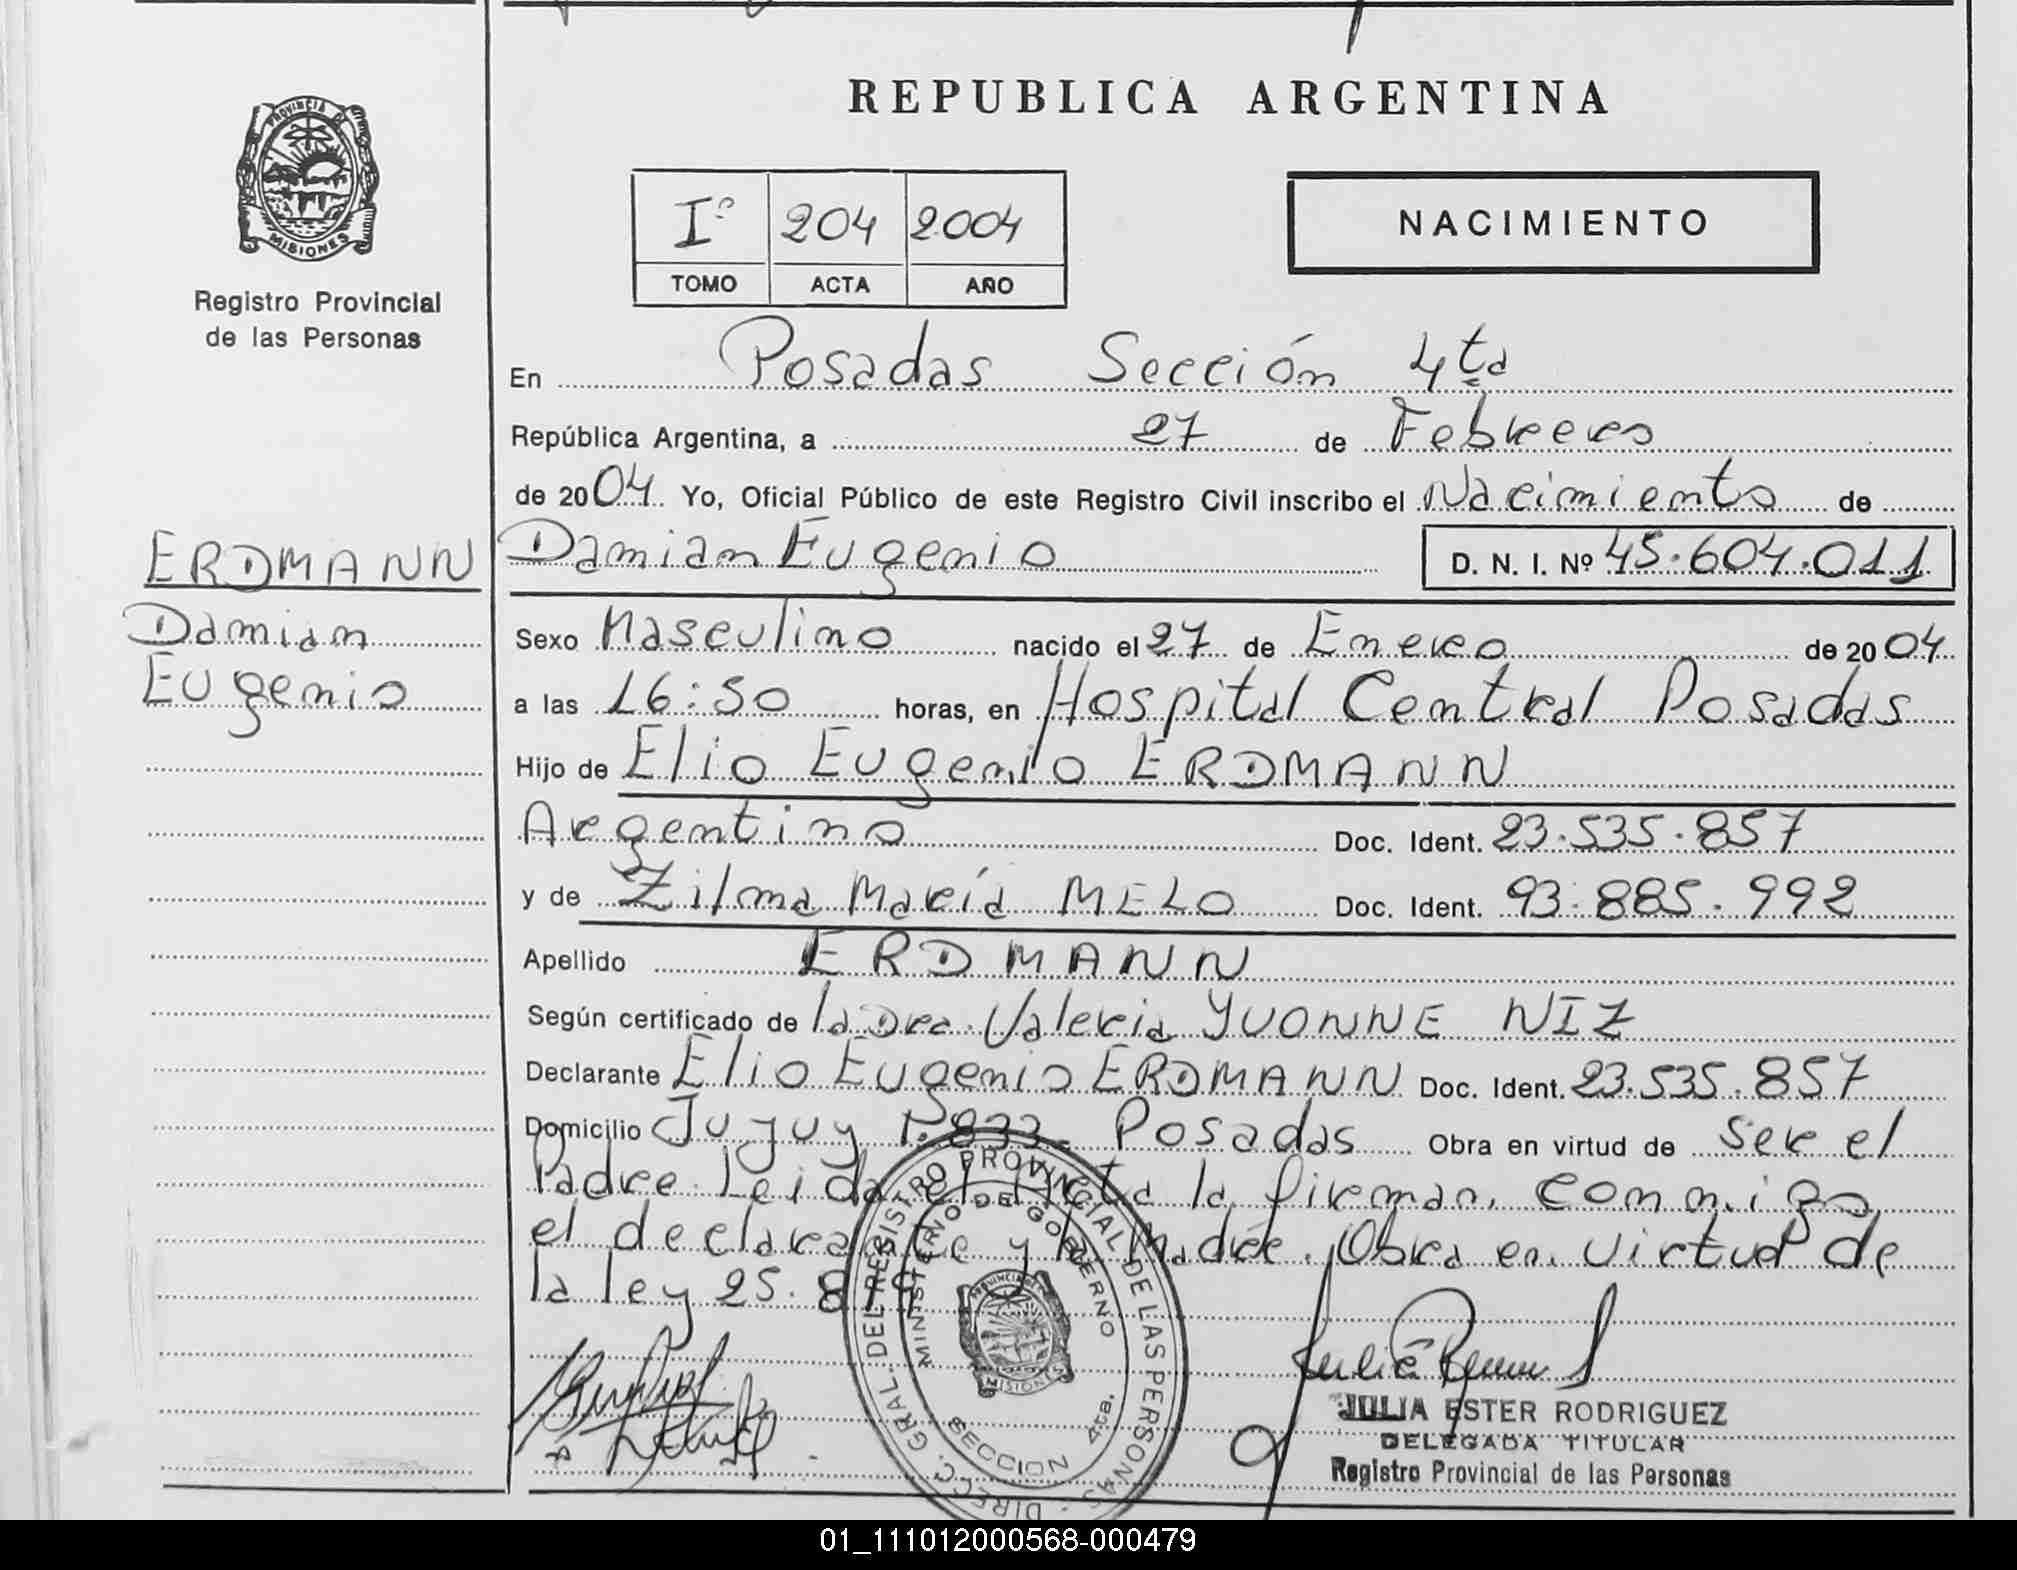 REPUBLICA ARGENTINA
PROVINCIA DE
MISIONES
Registro Provincial
de las Personas
Iº 204 2004
TOMO ACTA AÑO
NACIMIENTO
En Posadas Sección 4ta
República Argentina, a 27 de Febrero
de 2004 Yo, Oficial Público de este Registro Civil inscribo el Nacimiento de
Damian Eugenio D. N. I. Nº 45.604.011
ERDMANN
Damian
Eugenio
Sexo Masculino nacido el 27 de Enero de 2004
a las 16:50 horas, en Hospital Central Posadas
Hijo de Elio Eugenio ERDMANN
Argentino Doc. Ident. 23.535.857
y de Zilma María MELO Doc. Ident. 93.885.992
Apellido ERDMANN
Según certificado de la Dra. Valeria YVONNE NIZ
Declarante Elio Eugenio ERDMANN Doc. Ident. 23.535.857
Domicilio Jujuy 1.833 Posadas Obra en virtud de ser el
Padre. Leida el Acta la firman conmigo
el declarante y la madre. Obra en virtud de
la ley 25.819
DIREC. GRAL. DEL REGISTRO PROVINCIAL DE LAS PERSONAS
MINISTERIO DE GOBIERNO
PROVINCIA DE
MISIONES
SECCION 4ta.
JULIA ESTER RODRIGUEZ
DELEGADA TITULAR
Registro Provincial de las Personas
01_111012000568-000479